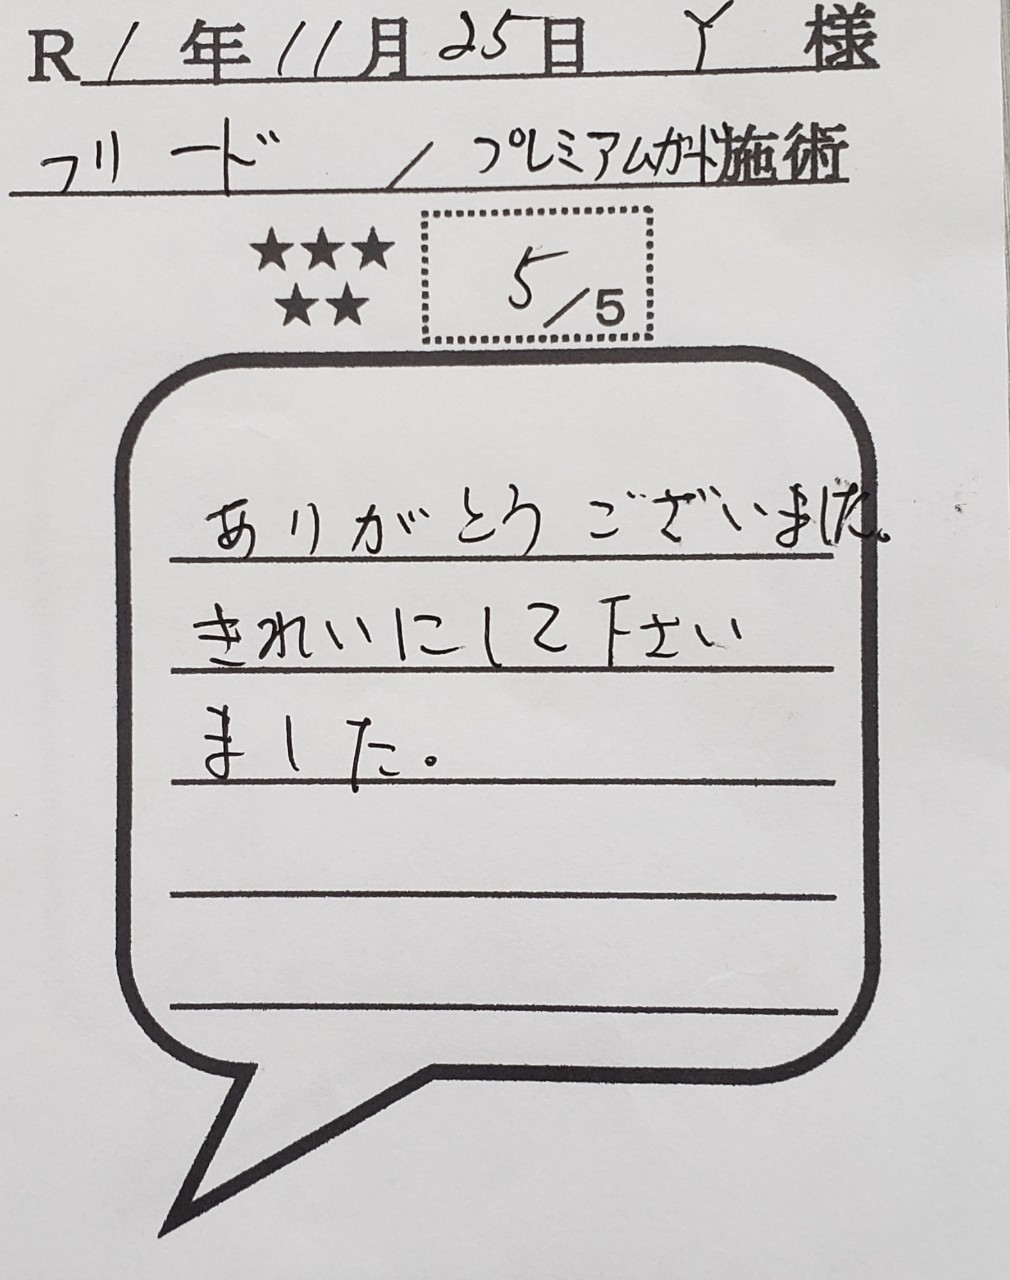 R1年11月25日 Y 様
フリード / プレミアムガード施術
★★★
★★
5/5
ありがとうございました。
きれいにして下さい
ました。